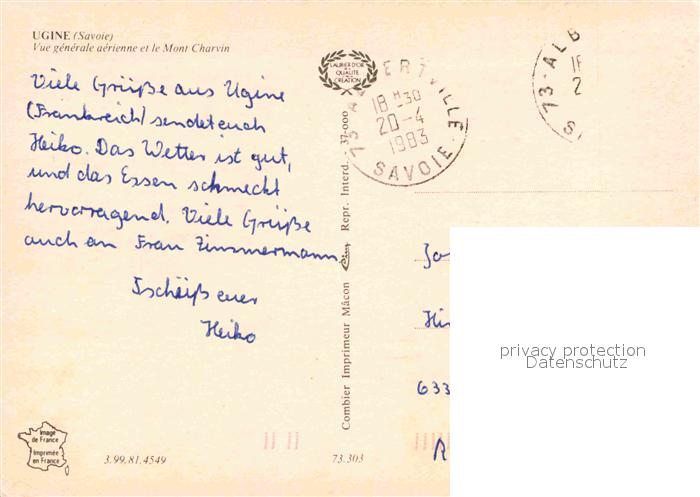 UGINE (Savoie)
Vue générale aérienne et le Mont Charvin
Viele Grüße aus Ugine
(Frankreich) sendet euch
Heiko. Das Wetter ist gut,
und das Essen schmeckt
hervorragend. Viele Grüße
auch an Frau Zimmermann.
Tschüß euer
Heiko
LAURIER D'OR
DE LA
QUALITÉ
CREATION
73 ALBERTVILLE
18 H30
20-4
1983
SAVOIE
73 ALB
18
2
S
Combier Imprimeur Mâcon
Repr. Interd. - 37-000
Jo
Hi
633
R
privacy protection
Datenschutz
Image
de France
Imprimée
en France
3.99.81.4549
73.303